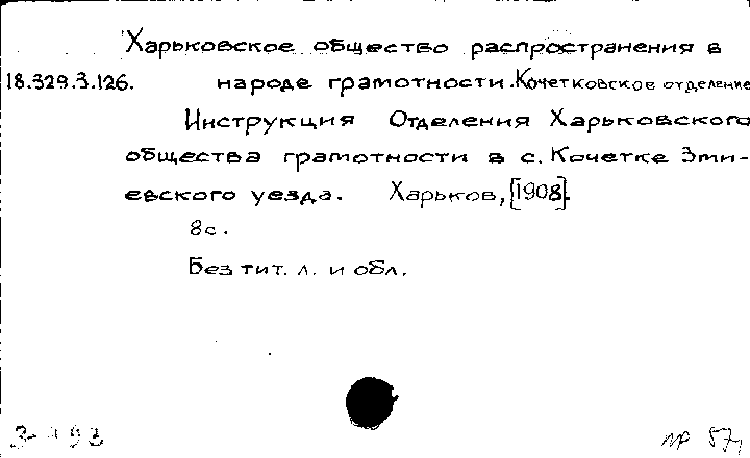 Харьковское общество распространения в
18.329.3.126. народе грамотности. Кочетковское отделение
Инструкция Отделения Харьковского
общества грамотности в с. Кочетке Зми-
евского уезда. Харьков, [1908].
8с.
Без тит. л. и обл.